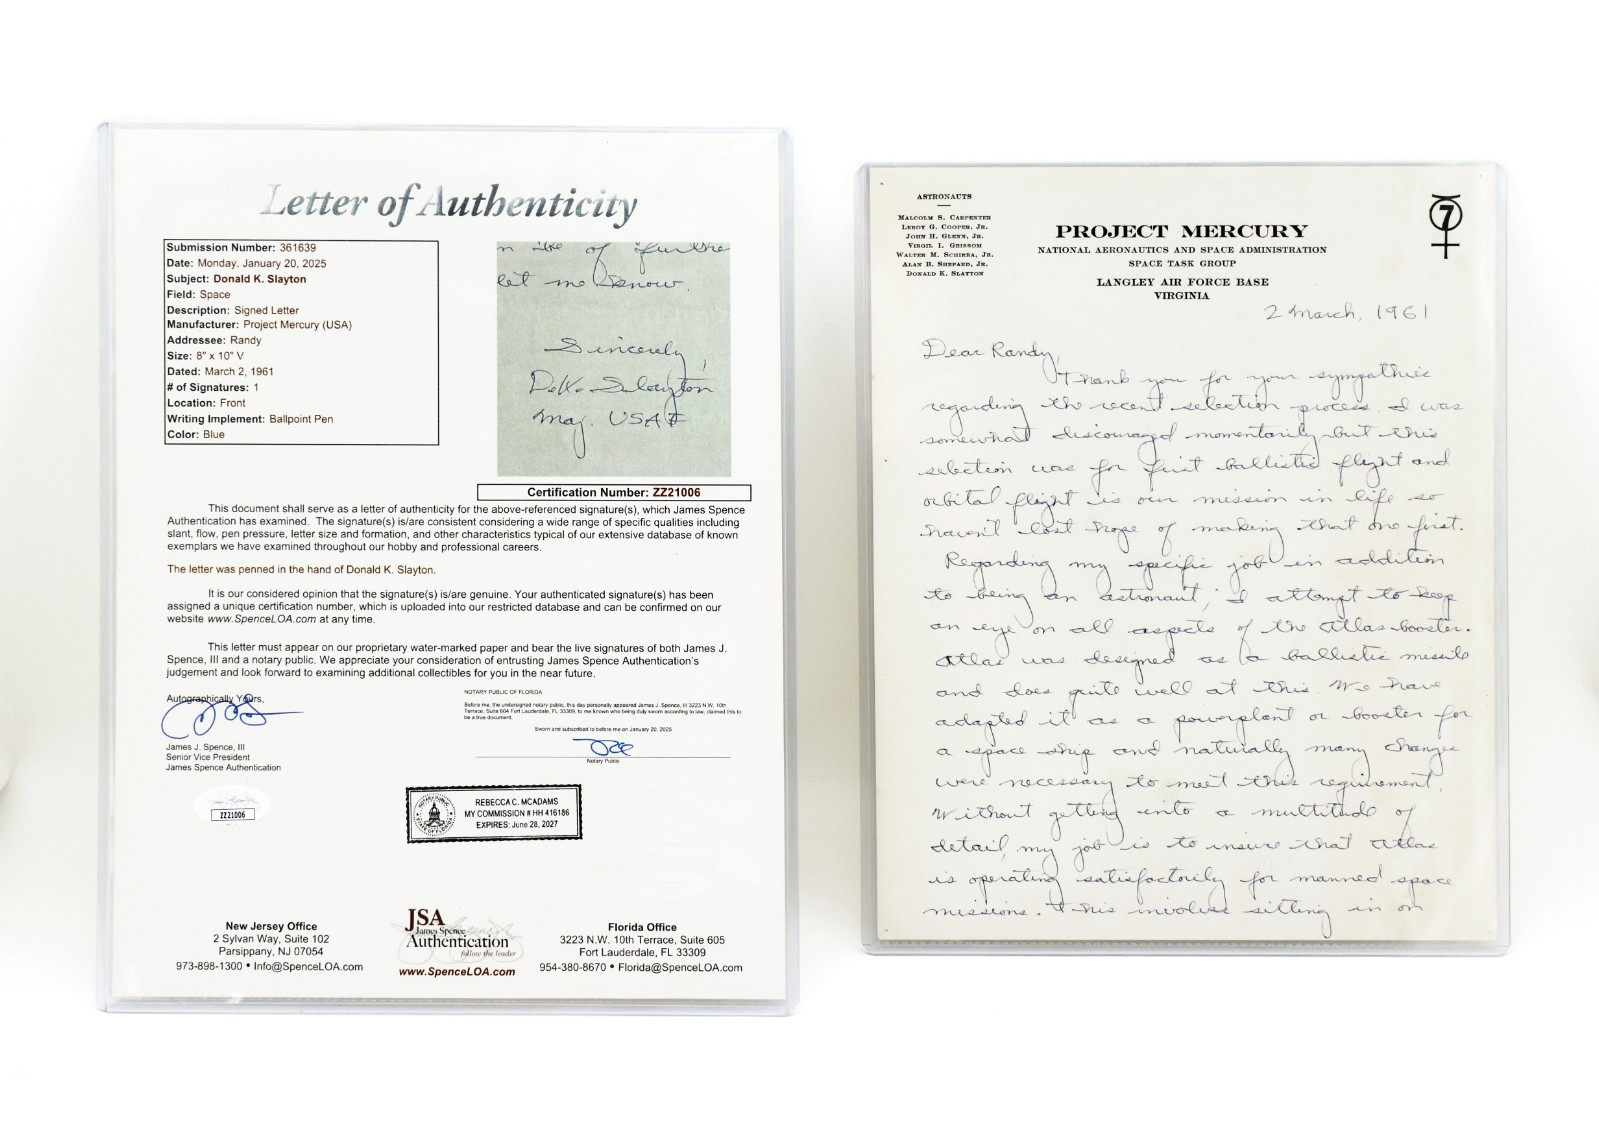 Letter of Authenticity
Submission Number: 361639
Date: Monday, January 20, 2025
Subject: Donald K. Slayton
Field: Space
Description: Signed Letter
Manufacturer: Project Mercury (USA)
Addressee: Randy
Size: 8" x 10" V
Dated: March 2, 1961
# of Signatures: 1
Location: Front
Writing Implement: Ballpoint Pen
Color: Blue
of further
let me know.
Sincerely,
D.K. Slayton
Maj. USAF
Certification Number: ZZ21006
This document shall serve as a letter of authenticity for the above-referenced signature(s), which James Spence
Authentication has examined. The signature(s) is/are consistent considering a wide range of specific qualities including
slant, flow, pen pressure, letter size and formation, and other characteristics typical of our extensive database of known
exemplars we have examined throughout our hobby and professional careers.
The letter was penned in the hand of Donald K. Slayton.
It is our considered opinion that the signature(s) is/are genuine. Your authenticated signature(s) has been
assigned a unique certification number, which is uploaded into our restricted database and can be confirmed on our
website www.SpenceLOA.com at any time.
This letter must appear on our proprietary water-marked paper and bear the live signatures of both James J.
Spence, III and a notary public. We appreciate your consideration of entrusting James Spence Authentication's
judgement and look forward to examining additional collectibles for you in the near future.
Autographically Yours,
James J. Spence, III
Senior Vice President
James Spence Authentication
NOTARY PUBLIC OF FLORIDA
Before me, the undersigned notary public, this day personally appeared James J. Spence, III 3223 N.W. 10th
Terrace, Suite 604 Fort Lauderdale, FL 33309, to me known who being duly sworn according to law, claimed this to
be a true document.
Sworn and subscribed to before me on January 20, 2025
Notary Public
ZZ21006
REBECCA C. MCADAMS
MY COMMISSION # HH 416186
EXPIRES: June 28, 2027
New Jersey Office
2 Sylvan Way, Suite 102
Parsippany, NJ 07054
973-898-1300 • Info@SpenceLOA.com
JSA
James Spence
Authentication
follow the leader
www.SpenceLOA.com
Florida Office
3223 N.W. 10th Terrace, Suite 605
Fort Lauderdale, FL 33309
954-380-8670 • Florida@SpenceLOA.com
ASTRONAUTS
MALCOLM S. CARPENTER
LEROY G. COOPER, JR.
JOHN H. GLENN, JR.
VIRGIL I. GRISSOM
WALTER M. SCHIRRA, JR.
ALAN B. SHEPARD, JR.
DONALD K. SLAYTON
PROJECT MERCURY
NATIONAL AERONAUTICS AND SPACE ADMINISTRATION
SPACE TASK GROUP
LANGLEY AIR FORCE BASE
VIRGINIA
7
2 March, 1961
Dear Randy,
Thank you for your sympathies
regarding the recent selection process. I was
somewhat discouraged momentarily but this
selection was for first ballistic flight and
orbital flight is our mission in life so
haven't lost hope of making that one first.
Regarding my specific job in addition
to being an astronaut, I attempt to keep
an eye on all aspects of the Atlas booster.
Atlas was designed as a ballistic missile
and does quite well at this. We have
adapted it as a powerplant or booster for
a space ship and naturally many changes
were necessary to meet this requirement.
Without getting into a multitude of
detail, my job is to insure that Atlas
is operating satisfactorily for manned space
missions. This involves sitting in on